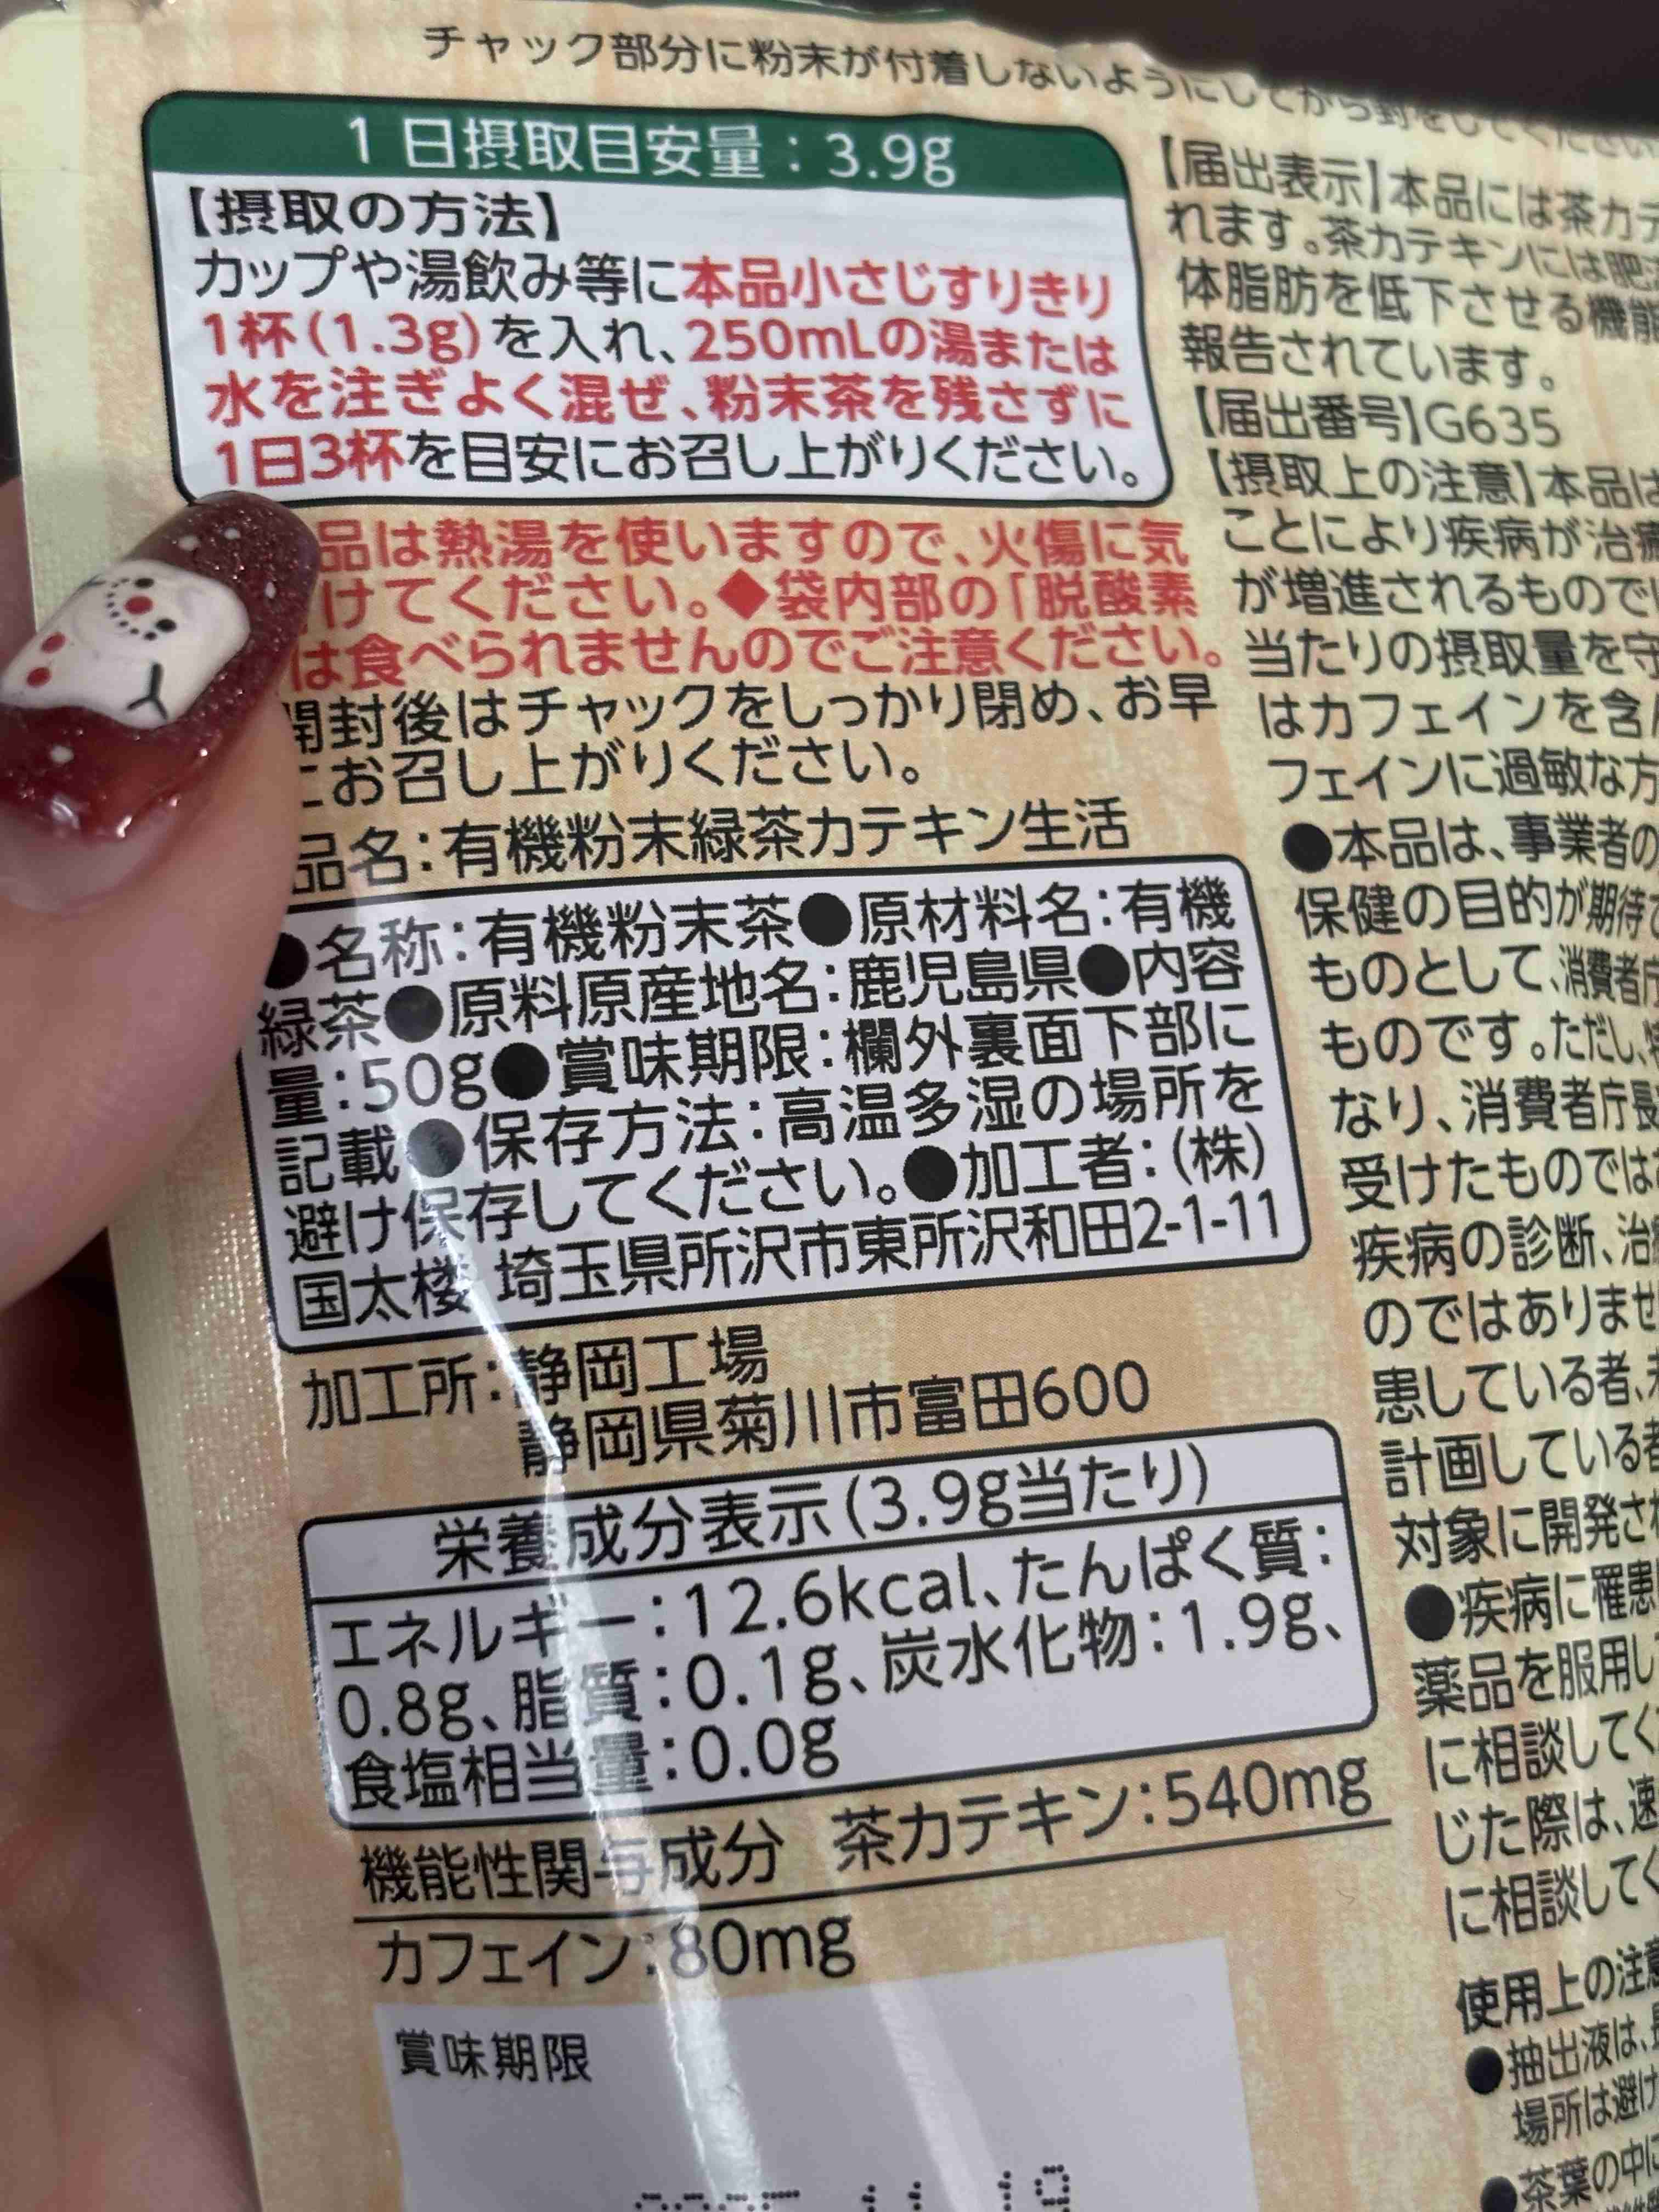 チャック部分に粉末が付着しないようにしてから封をしてください
1日摂取目安量：3.9g
【摂取の方法】
カップや湯飲み等に本品小さじすりきり
1杯(1.3g)を入れ、250mLの湯または
水を注ぎよく混ぜ、粉末茶を残さずに
1日3杯を目安にお召し上がりください。
品は熱湯を使いますので、火傷に気
けてください。◆袋内部の「脱酸素
は食べられませんのでご注意ください。
開封後はチャックをしっかり閉め、お早
にお召し上がりください。
品名：有機粉末緑茶カテキン生活
●名称：有機粉末茶●原材料名：有機
緑茶●原料原産地名：鹿児島県●内容
量：50g●賞味期限：欄外裏面下部に
記載●保存方法：高温多湿の場所を
避け保存してください。●加工者：(株)
国太楼 埼玉県所沢市東所沢和田2-1-11
加工所：静岡工場
静岡県菊川市富田600
栄養成分表示(3.9g当たり)
エネルギー：12.6kcal、たんぱく質：
0.8g、脂質：0.1g、炭水化物：1.9g、
食塩相当量：0.0g
機能性関与成分 茶カテキン：540mg
カフェイン：80mg
賞味期限
【届出表示】本品には茶カテ
れます。茶カテキンには肥
体脂肪を低下させる機能
報告されています。
【届出番号】G635
【摂取上の注意】本品は
ことにより疾病が治
が増進されるもので
当たりの摂取量を守
はカフェインを含
フェインに過敏な方
●本品は、事業者の
保健の目的が期待
ものとして、消費者庁
ものです。ただし、
なり、消費者庁長
受けたものでは
疾病の診断、治
のではありませ
患している者、
計画している者
対象に開発さ
●疾病に罹患
薬品を服用し
に相談してく
じた際は、速
に相談してく
使用上の注意
●抽出液は、
場所は避け
●茶葉の中に